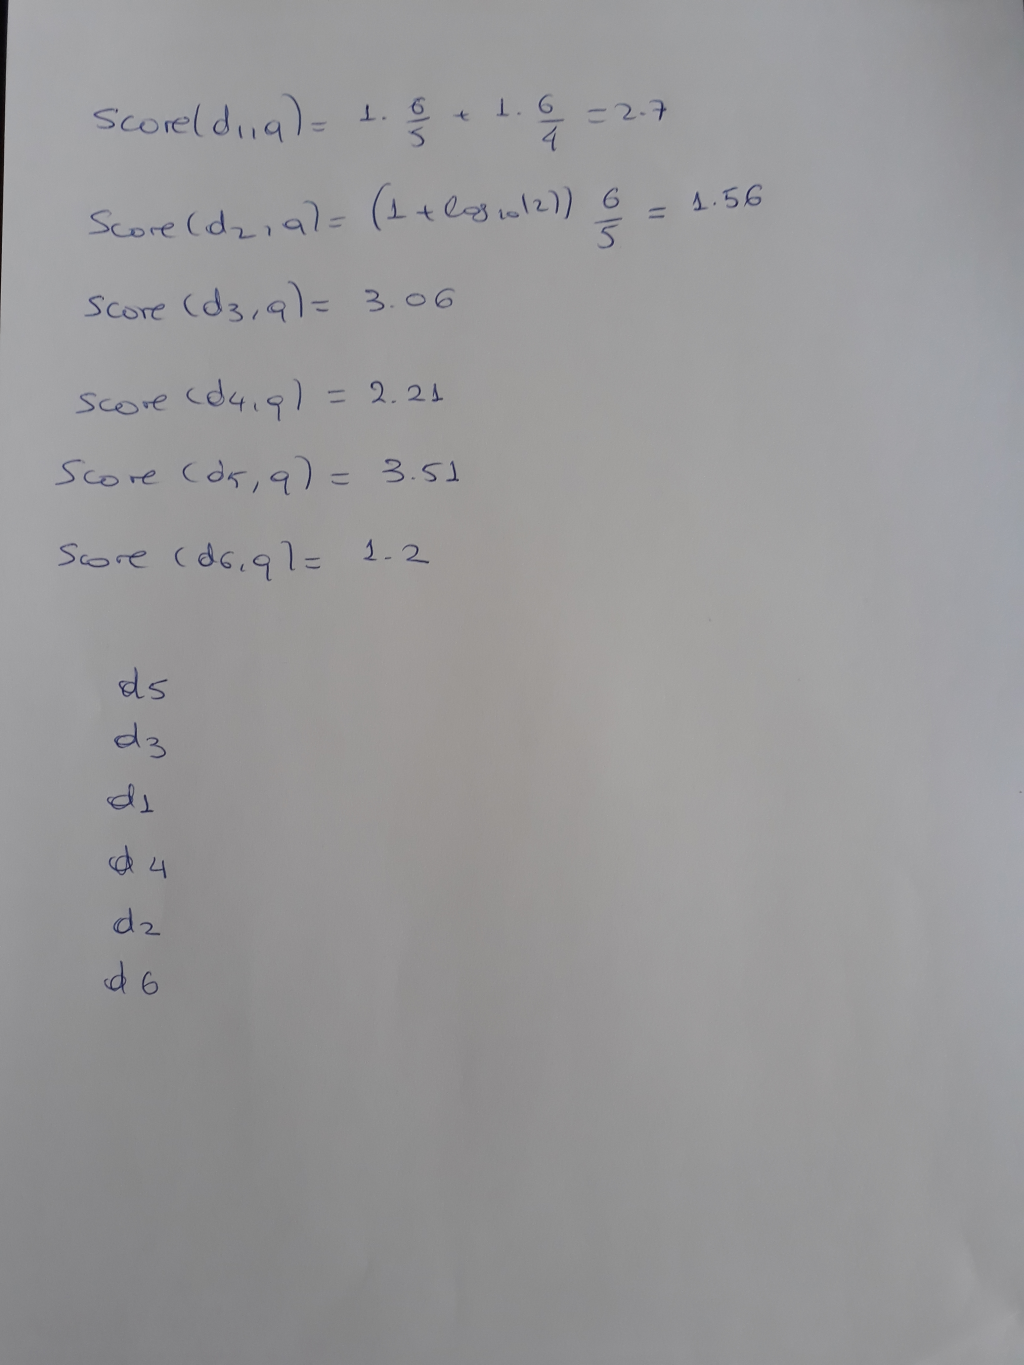 Score(d1,q) = 1. 6/5 + 1. 6/4 = 2.7
Score(d2,q) = (1 + log10(2)) 6/5 = 1.56
Score (d3,q) = 3.06
Score (d4,q) = 2.21
Score (d5,q) = 3.51
Score (d6,q) = 1.2
d5
d3
d1
d4
d2
d6